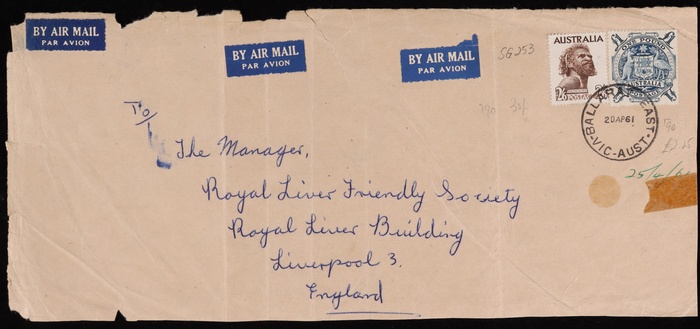 BY AIR MAIL
PAR AVION
BY AIR MAIL
PAR AVION
BY AIR MAIL
PAR AVION
SG 253
AUSTRALIA
2/6
POSTAGE
ONE POUND
AUSTRALIA
POSTAGE
BALLARAT EAST
2DAP61
VIC-AUST
To/
The Manager,
Royal Liver Friendly Society
Royal Liver Building
Liverpool 3.
England
25/4/61